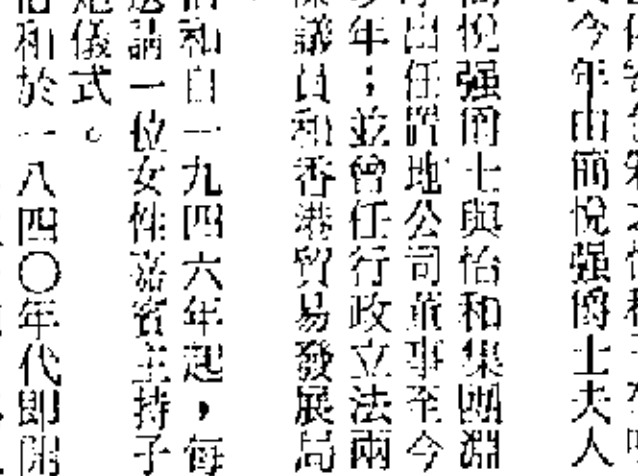 今年由簡悅强爵士夫人
悅强爵士與怡和集團淵
出任置地公司董事至今
年；並曾任行政立法兩
議員和香港貿易發展局
和自一九四六年起，每
請一位女性嘉賓主持子
儀式。
和於一八四〇年代即開